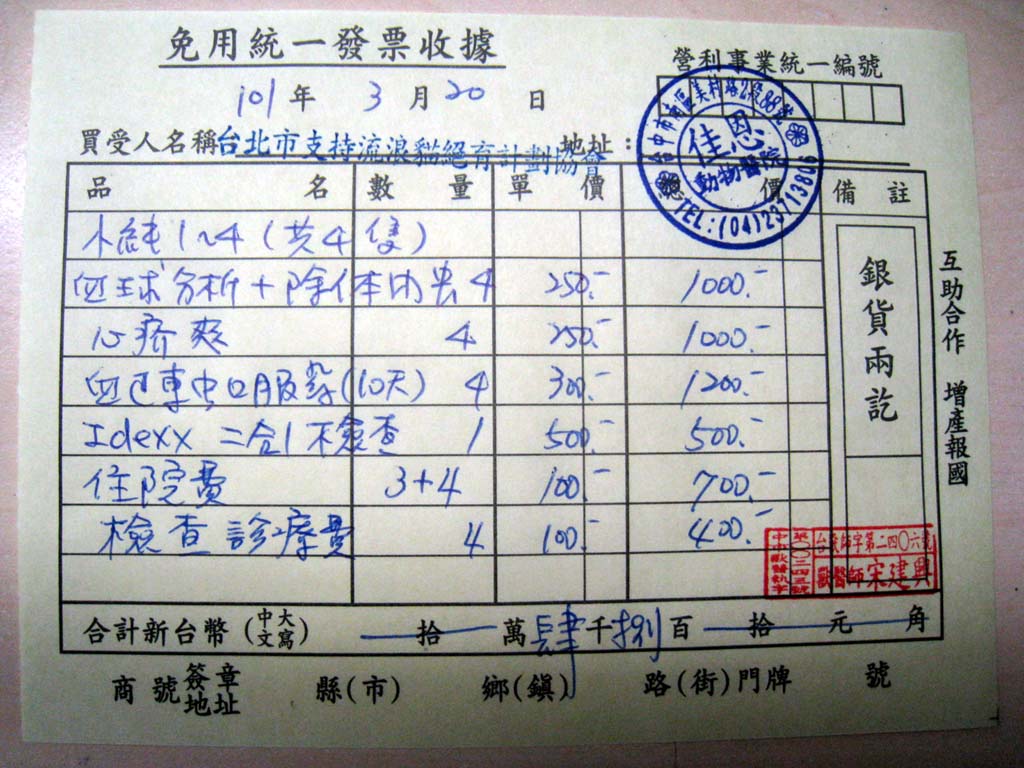 免用統一發票收據
營利事業統一編號
101年 3月20日
買受人名稱台北市支持流浪貓絕育計劃協會 地址：
台中市南區美村路2段88號
佳恩
動物醫院
TEL:(04)22713806
品名 數量 單價 總價 備註
小純1~4(共4隻)
血球分析+除体內虫 4 250.- 1000.-
心疥爽 4 250.- 1000.-
口服 (10天) 4 300.- 1200.-
Idexx 二合1檢查 1 500.- 500.-
住院費 3+4 100.- 700.-
檢查診療費 4 100.- 400.-
銀貨兩訖
互助合作 增產報國
獸醫師宋建興
合計新台幣(中文大寫) 拾 萬肆千捌百 拾 元 角
商號簽章地址 縣(市) 鄉(鎮) 路(街)門牌 號